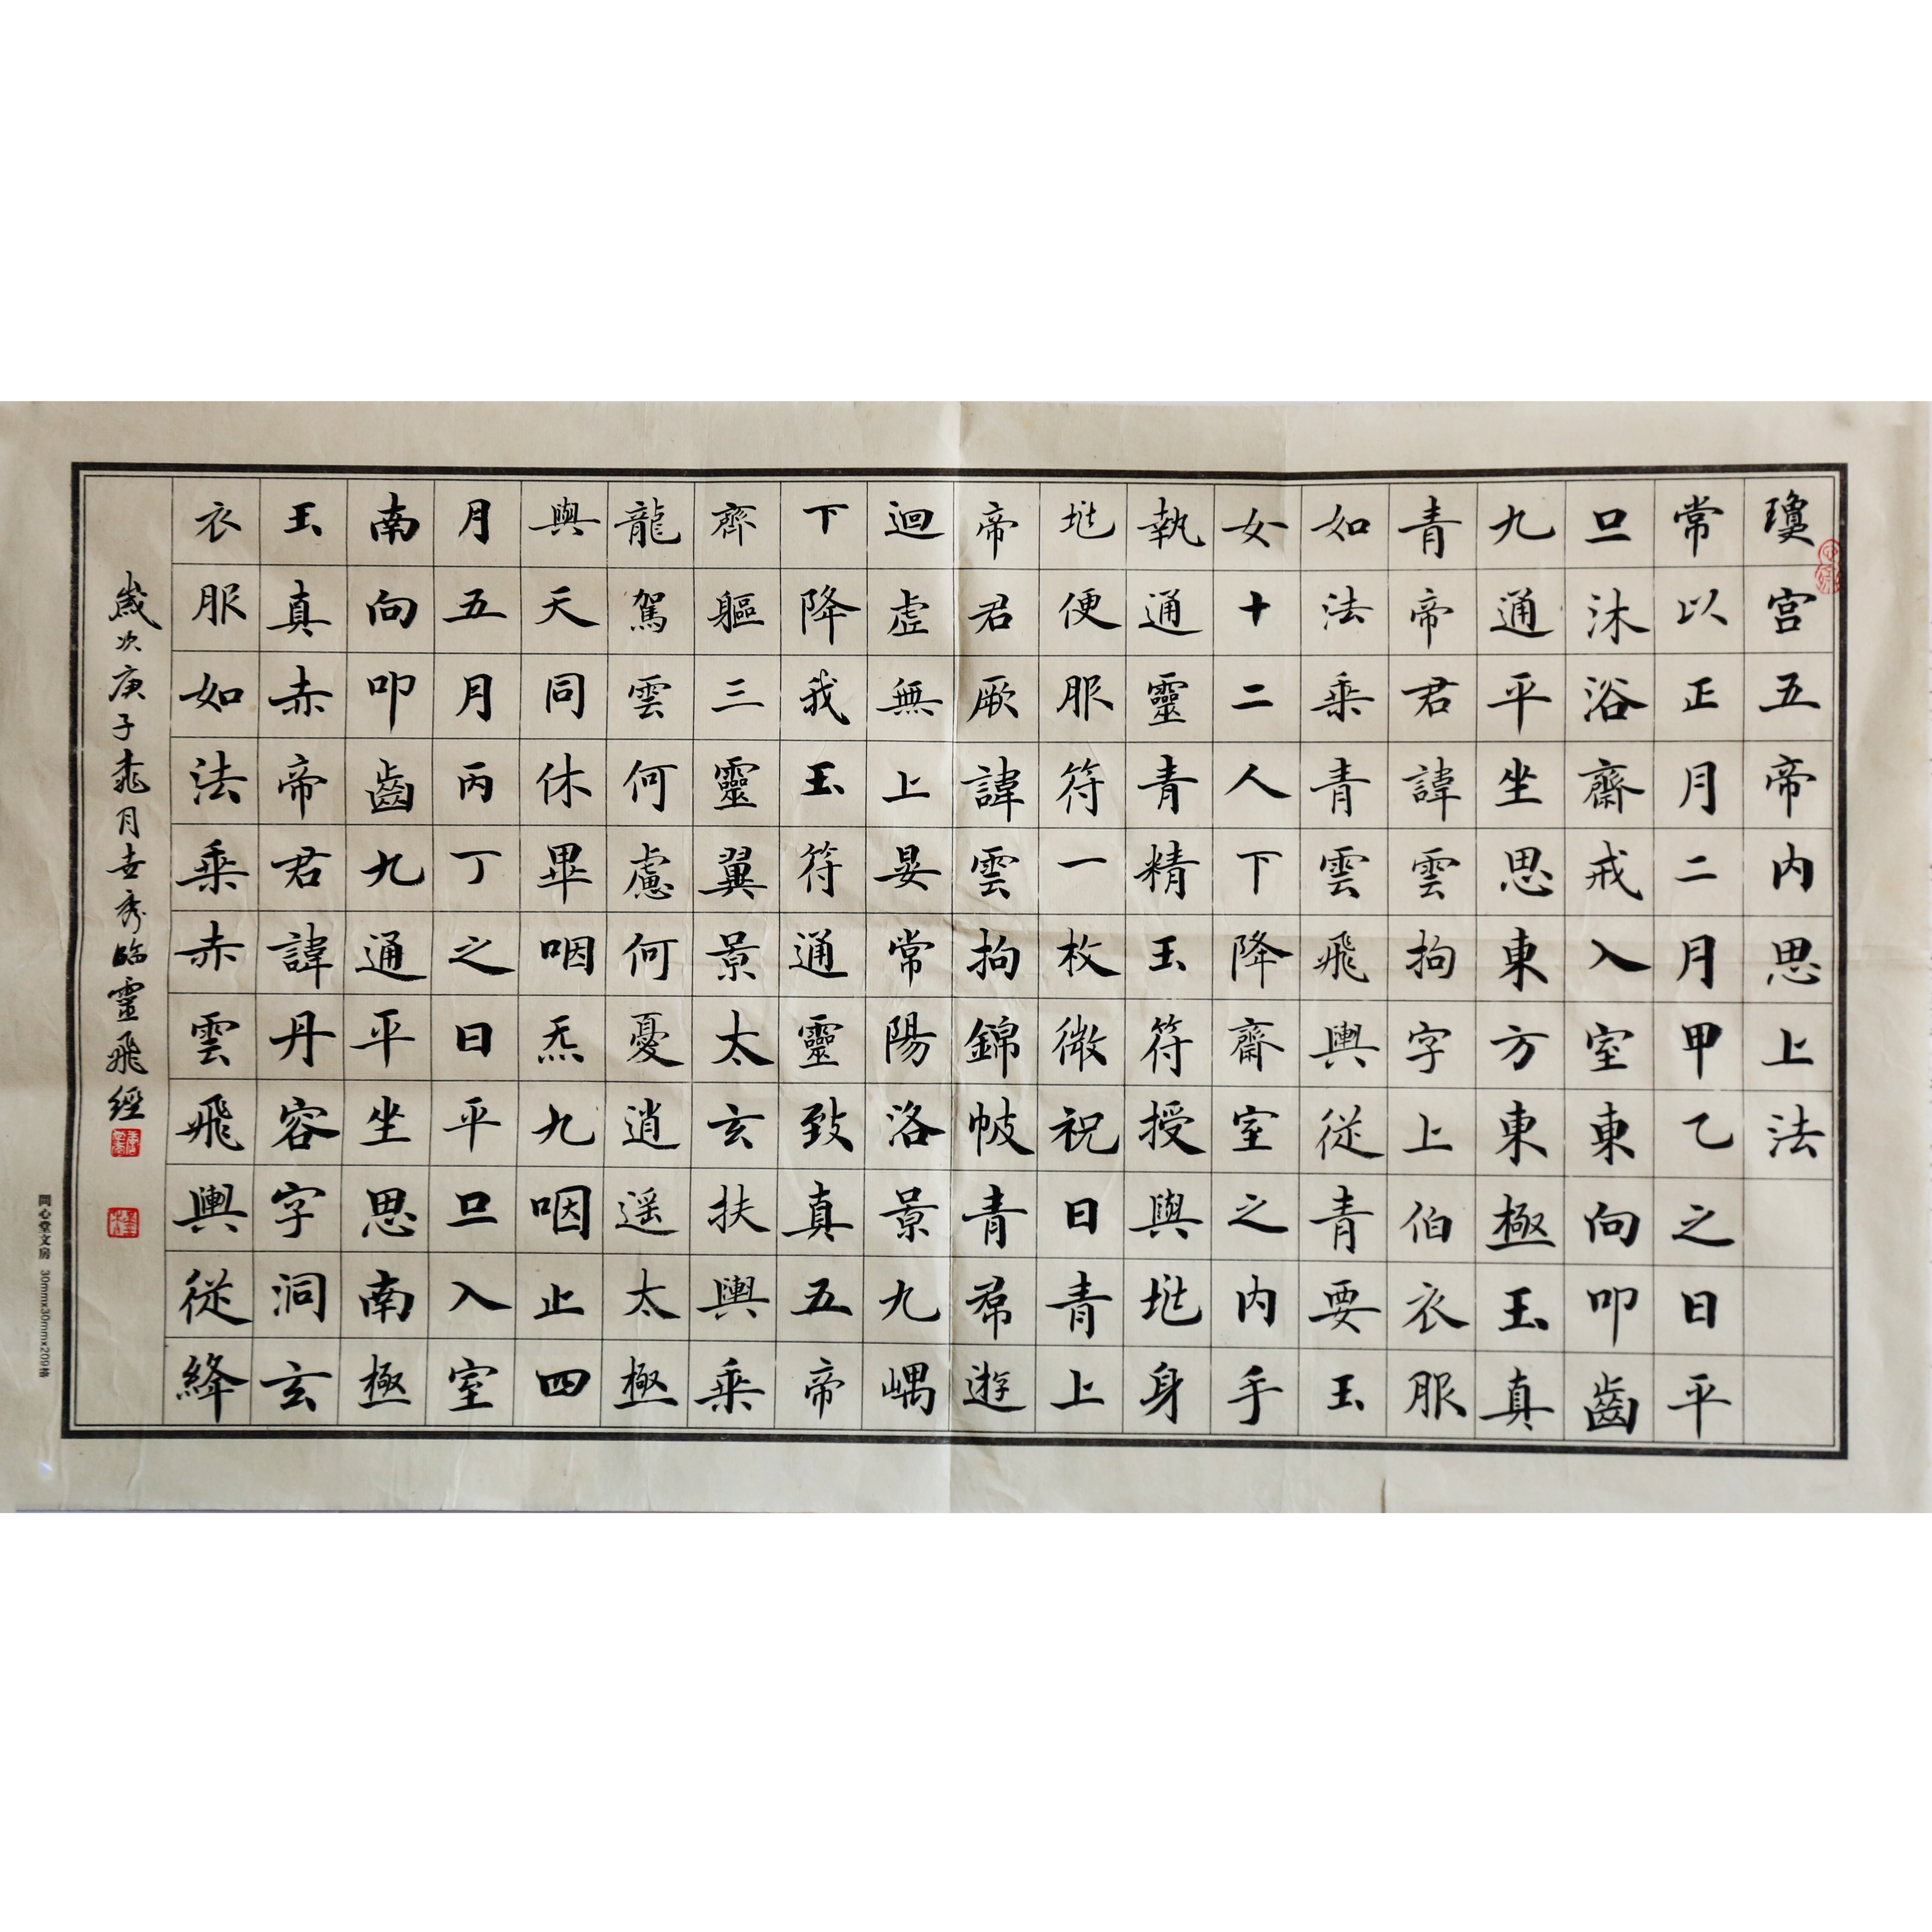 瓊宮五帝内思上法
常以正月二月甲乙之日平
旦沐浴齋戒入室東向叩齒
九通平坐思東方東極玉真
青帝君諱雲拘字上伯衣服
如法乘青雲飛輿從青要玉
女十二人下降齋室之内手
執通靈青精玉符授與兆身
兆便服符一枚微祝曰青上
帝君厥諱雲拘錦帔青帬遊
迴虛無上晏常陽洛景九嵎
下降我玉符通靈致真五帝
齊軀三靈翼景太玄扶輿乘
龍駕雲何慮何憂逍遥太極
與天同休畢咽炁九咽止四
月五月丙丁之日平旦入室
南向叩齒九通平坐思南極
玉真赤帝君諱丹容字洞玄
衣服如法乘赤雲飛輿從絳
歲次庚子桃月去秀臨靈飛經
問心堂文房 30mmx30mmx209格